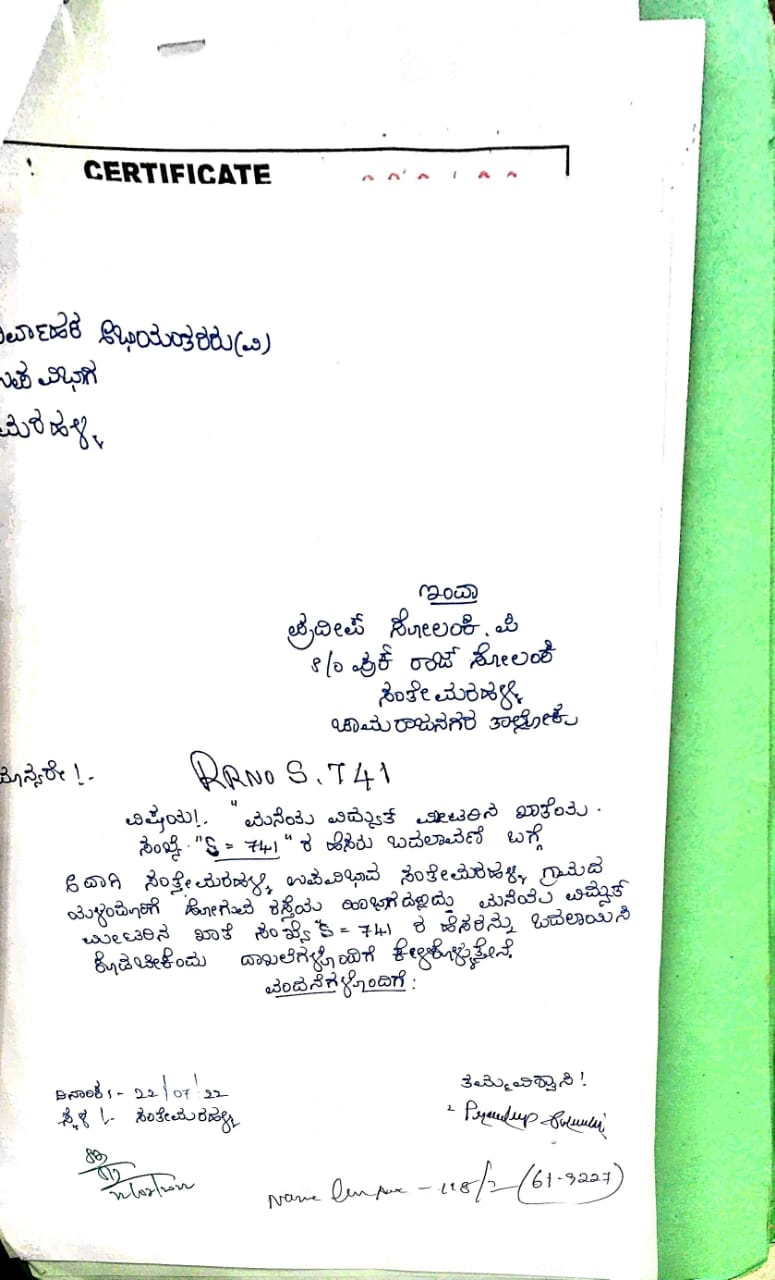 CERTIFICATE
ರ್ವಾಹಕ ಅಭಿಯಂತರರು(ವಿ)
ಉಪ ವಿಭಾಗ
ಮರಹಳ್ಳಿ
ಇಂದಾ
ಪ್ರದೀಪ್ ಸೋಲಂಕಿ. ಪಿ
S/o ಪುಕ್ ರಾಜ್ ಸೋಲಂಕಿ
ಸಂತೇಮರಹಳ್ಳಿ
ಚಾಮರಾಜನಗರ ತಾಲ್ಲೋಕು
ಮಾನ್ಯರೇ!.
RRNO S. 741
ವಿಷಯ!. "ಮನೆಯ ವಿದ್ಯುತ್ ಮೀಟರಿನ ಖಾತೆಯ
ಸಂಖ್ಯೆ "S = 741" ರ ಹೆಸರು ಬದಲಾವಣೆ ಬಗ್ಗೆ
ಸಂತೇಮರಹಳ್ಳಿ ಉಪವಿಭಾಗ ಸಂತೇಮರಹಳ್ಳಿ ಗ್ರಾಮದ
ಹೋಗುವ ರಸ್ತೆಯ ಮನೆಯ ವಿದ್ಯುತ್
ಮೀಟರಿನ ಖಾತೆ ಸಂಖ್ಯೆ "S = 741 ರ ಹೆಸರನ್ನು ಬದಲಾಯಿಸಿ
ಕೊಡಬೇಕೆಂದು ದಾಖಲೆಗಳೊಂದಿಗೆ ಕೇಳಿಕೊಳ್ಳುತ್ತೇನೆ.
ವಂದನೆಗಳೊಂದಿಗೆ:
ದಿನಾಂಕ :- 22/07/22
ತಮ್ಮವಿಶ್ವಾಸಿ!
ಸ್ಥಳ !- ಸಂತೇಮರಹಳ್ಳಿ
Name - 118/2 (61-9227)